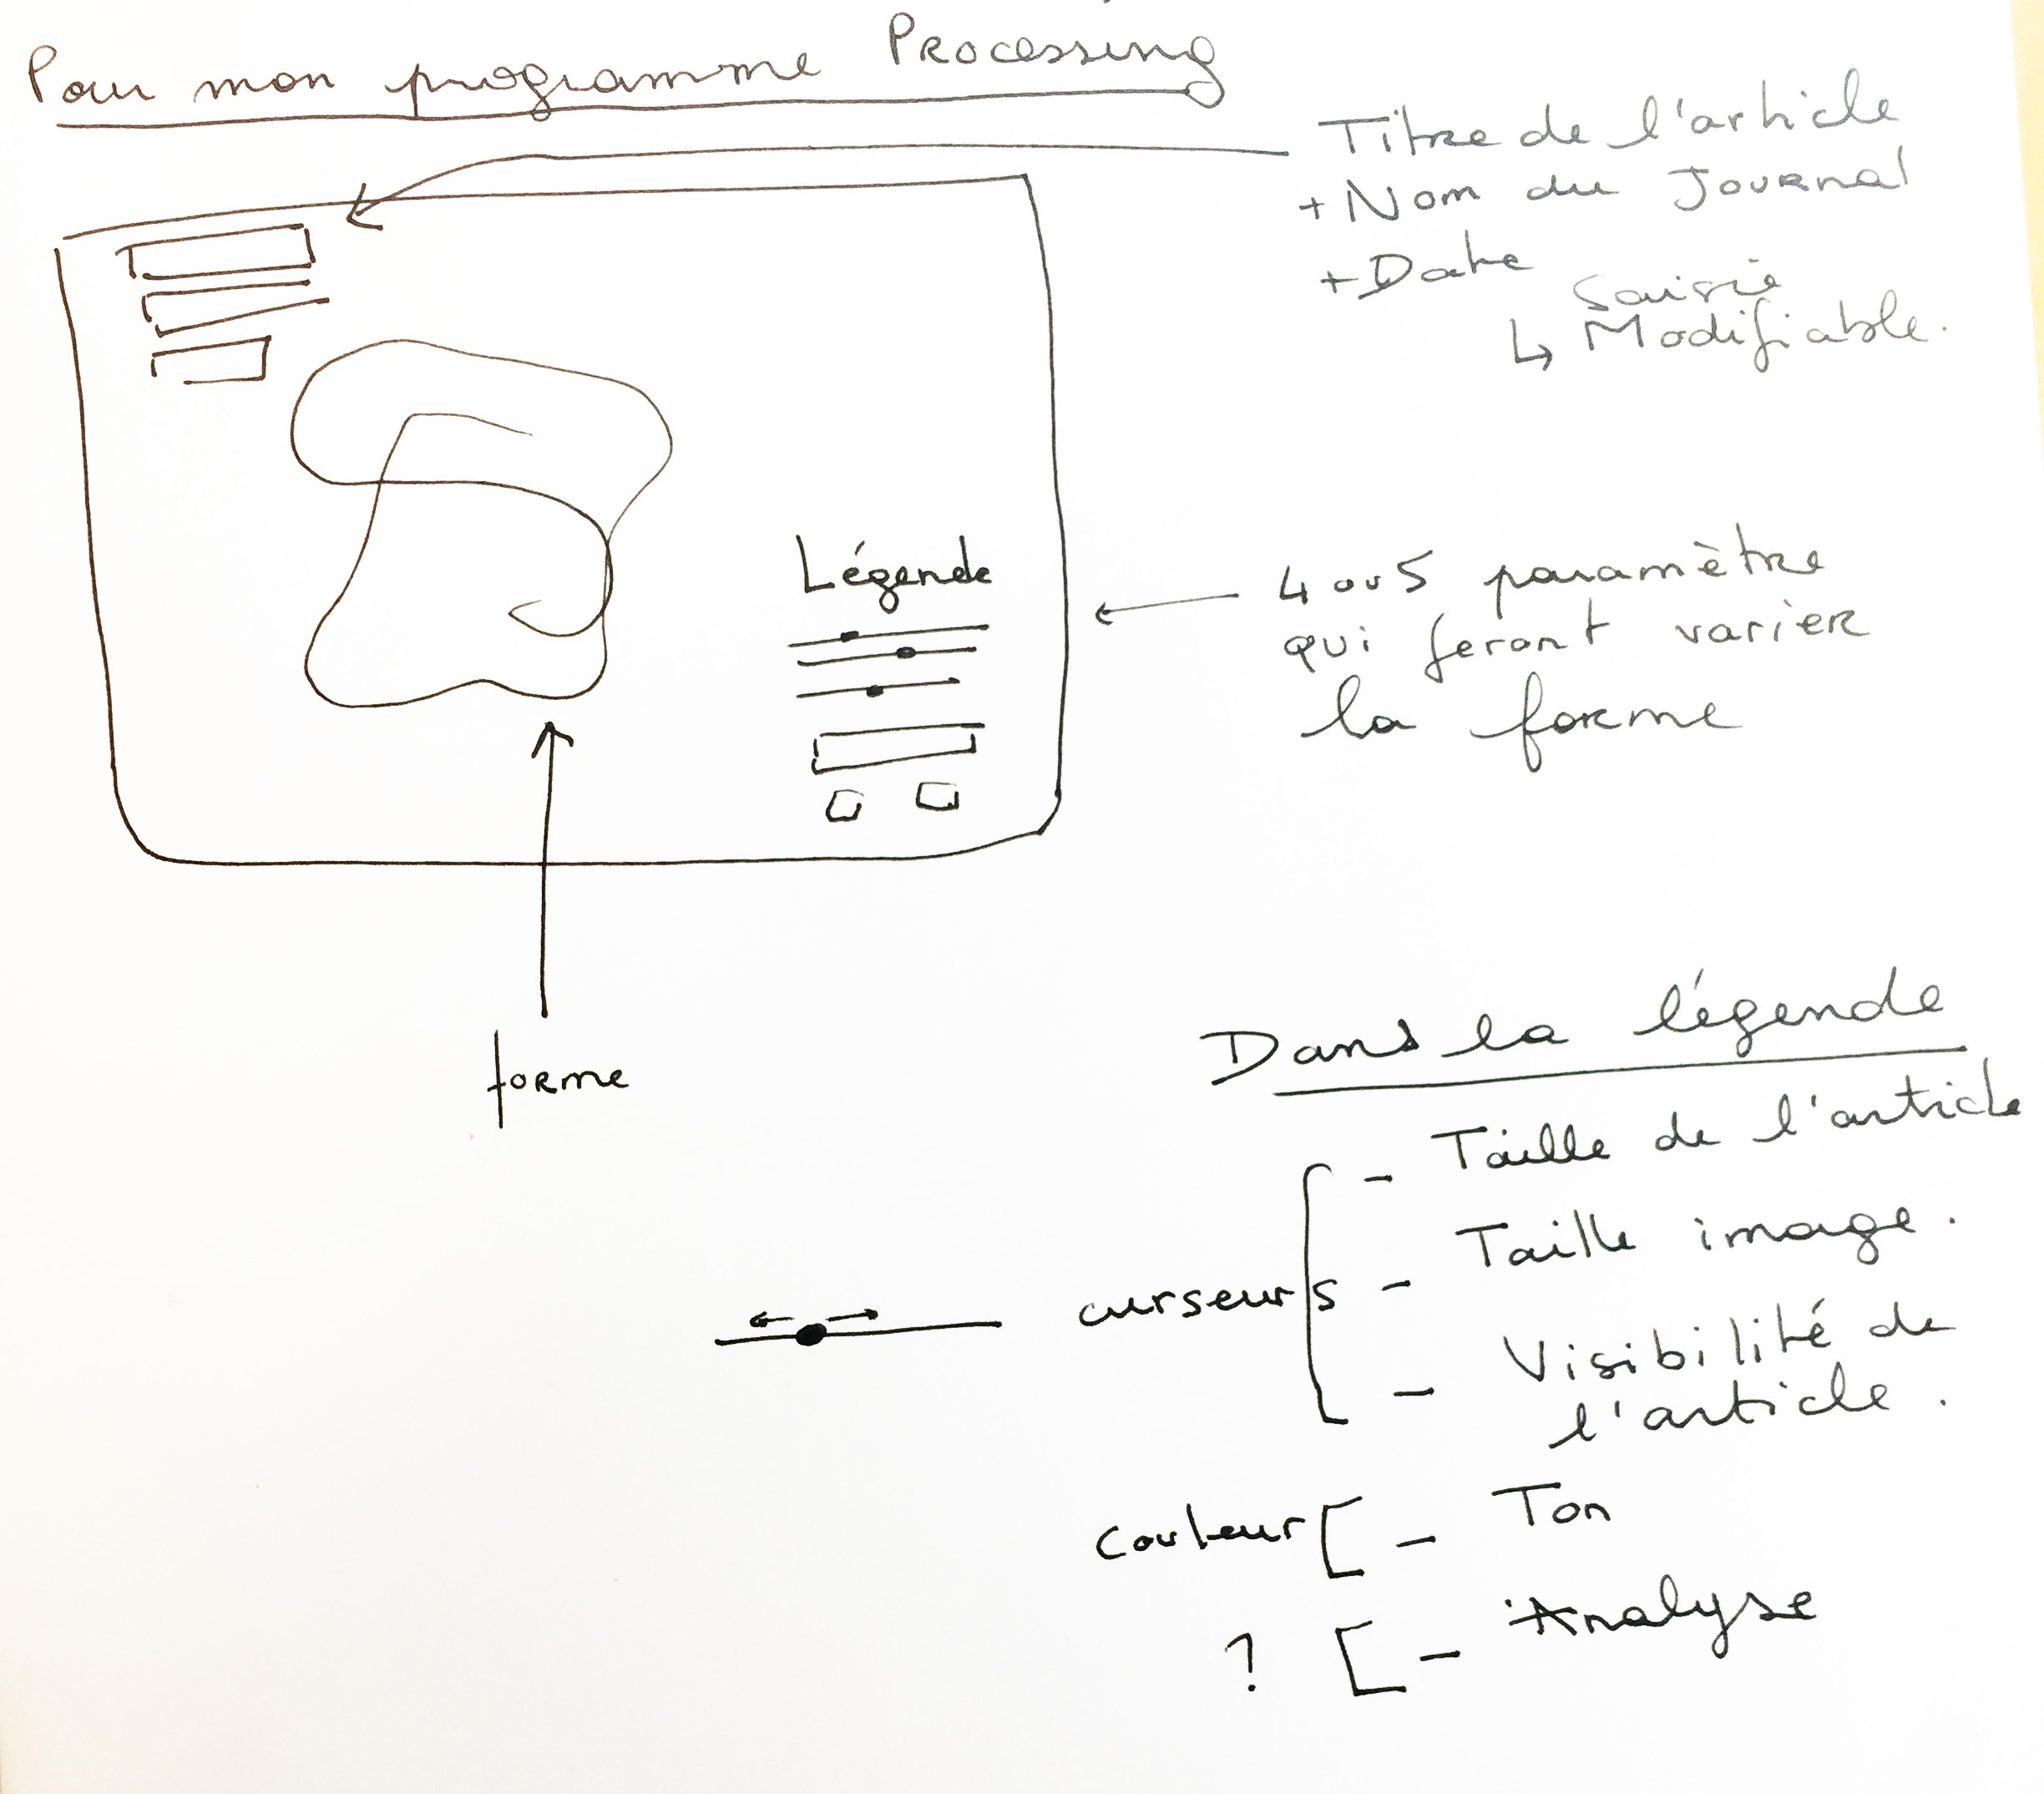 Pour mon programme Processing
Titre de l'article
+ Nom du Journal
+ Date
Saisie
↳ Modifiable.
Légende
4 ou 5 paramètre
qui feront varier
la forme
forme
Dans la légende
- Taille de l'article
- Taille image.
curseurs
- Visibilité de
l'article.
Couleur [ - Ton
? [ - Analyse